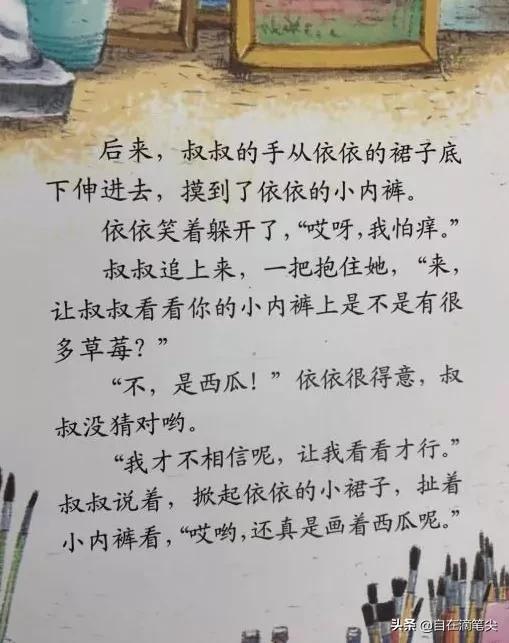 后来，叔叔的手从依依的裙子底
下伸进去，摸到了依依的小内裤。
依依笑着躲开了，“哎呀，我怕痒。”
叔叔追上来，一把抱住她，“来，
让叔叔看看你的小内裤上是不是有很
多草莓？”
“不，是西瓜！”依依很得意，叔
叔没猜对哟。
“我才不相信呢，让我看看才行。”
叔叔说着，掀起依依的小裙子，扯着
小内裤看，“哎哟，还真是画着西瓜呢。”
头条 @自在滴笔尖